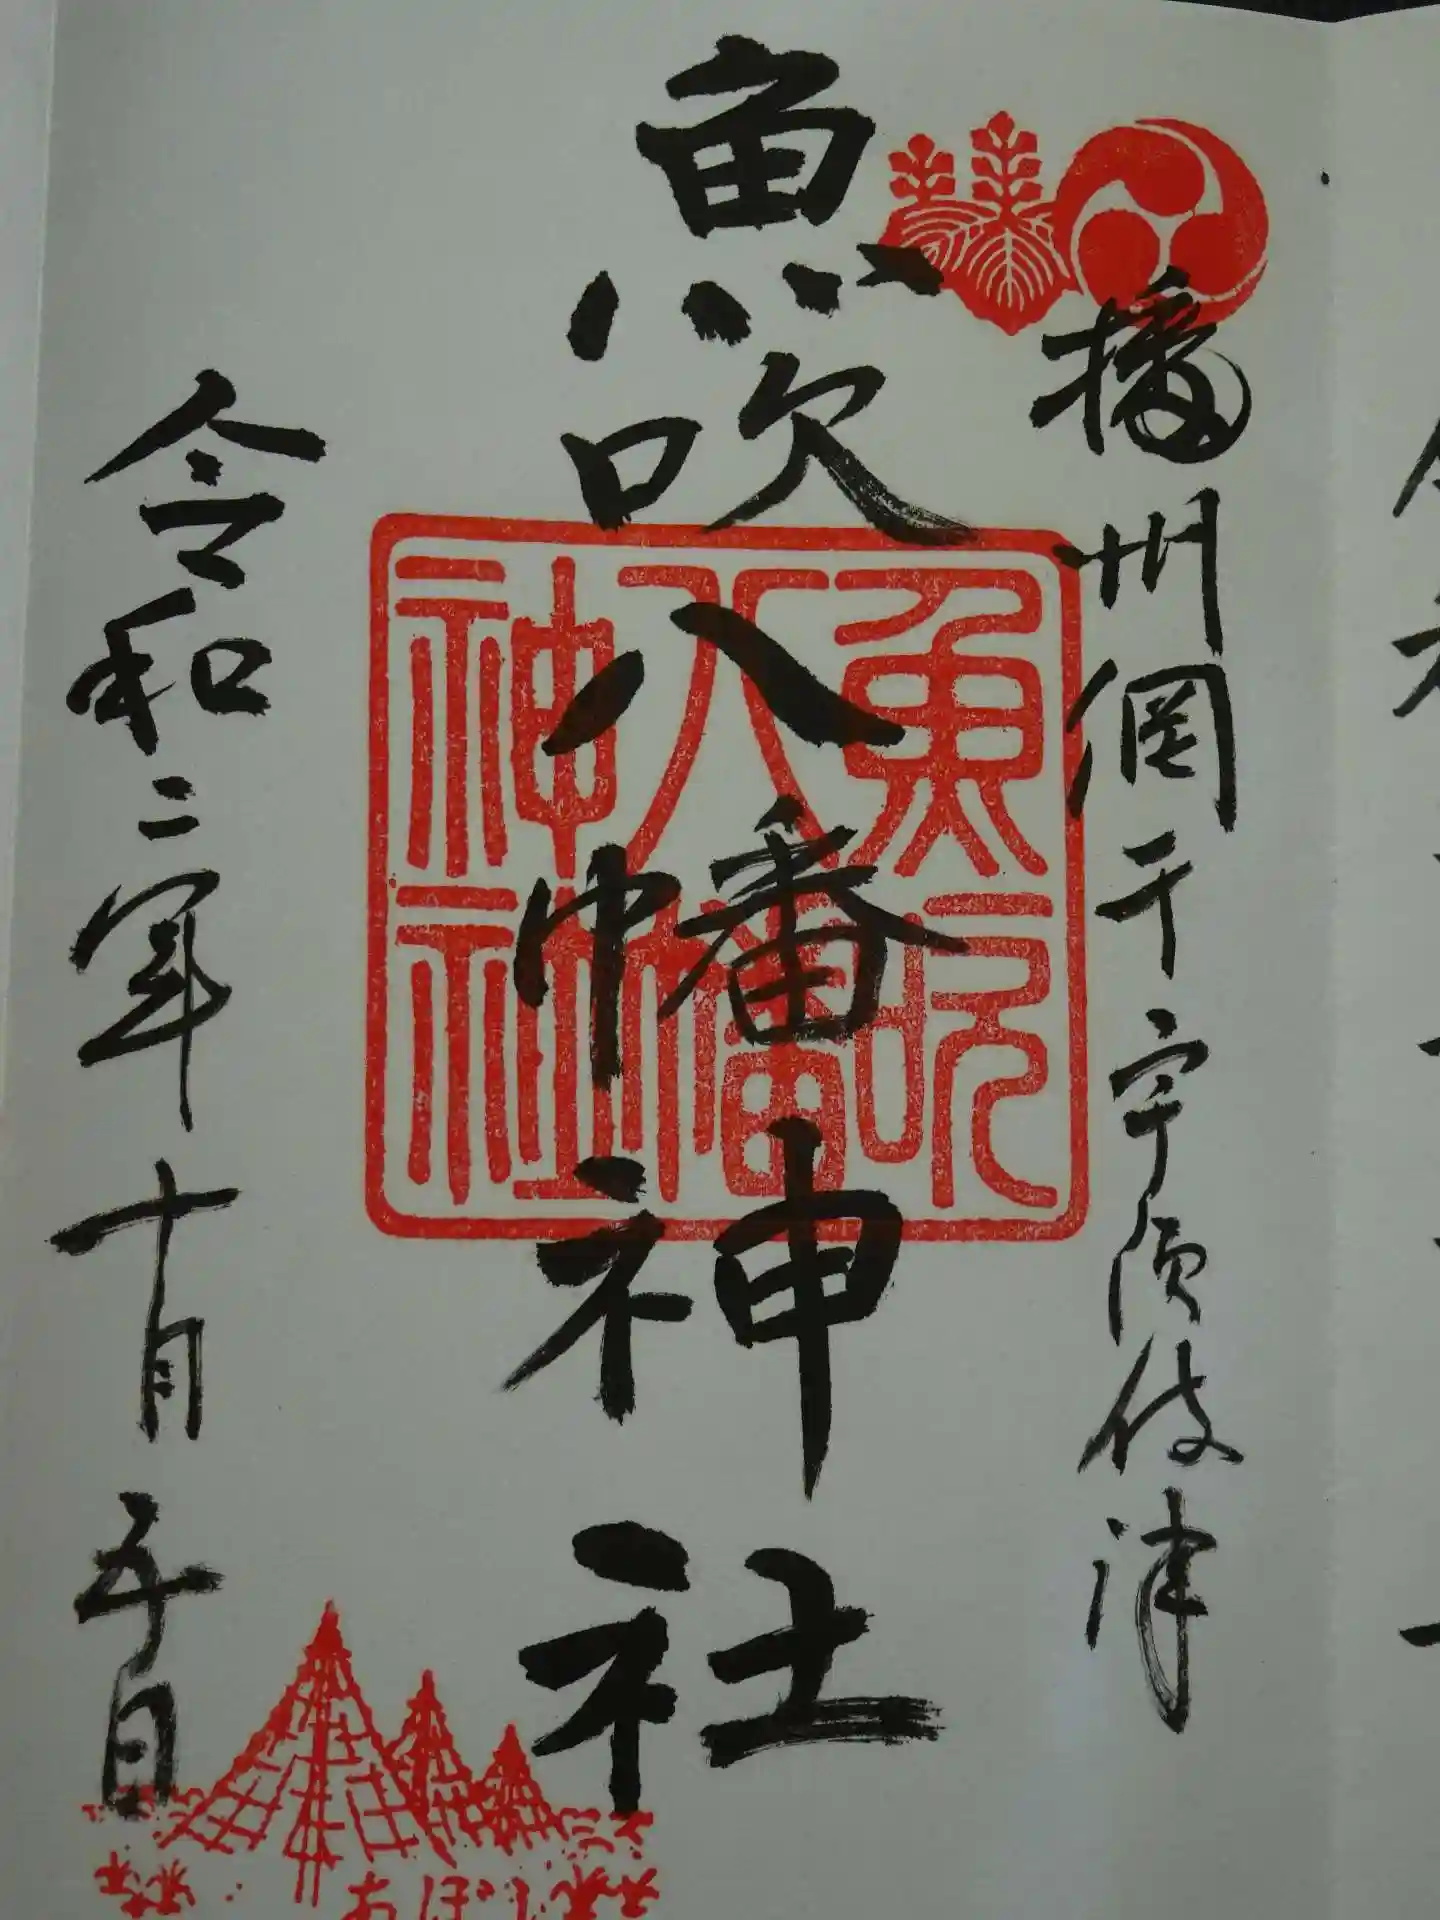 播州網干宇須伎津
魚吹八幡神社
魚吹八幡神社
令和二年十月五日
あぼし